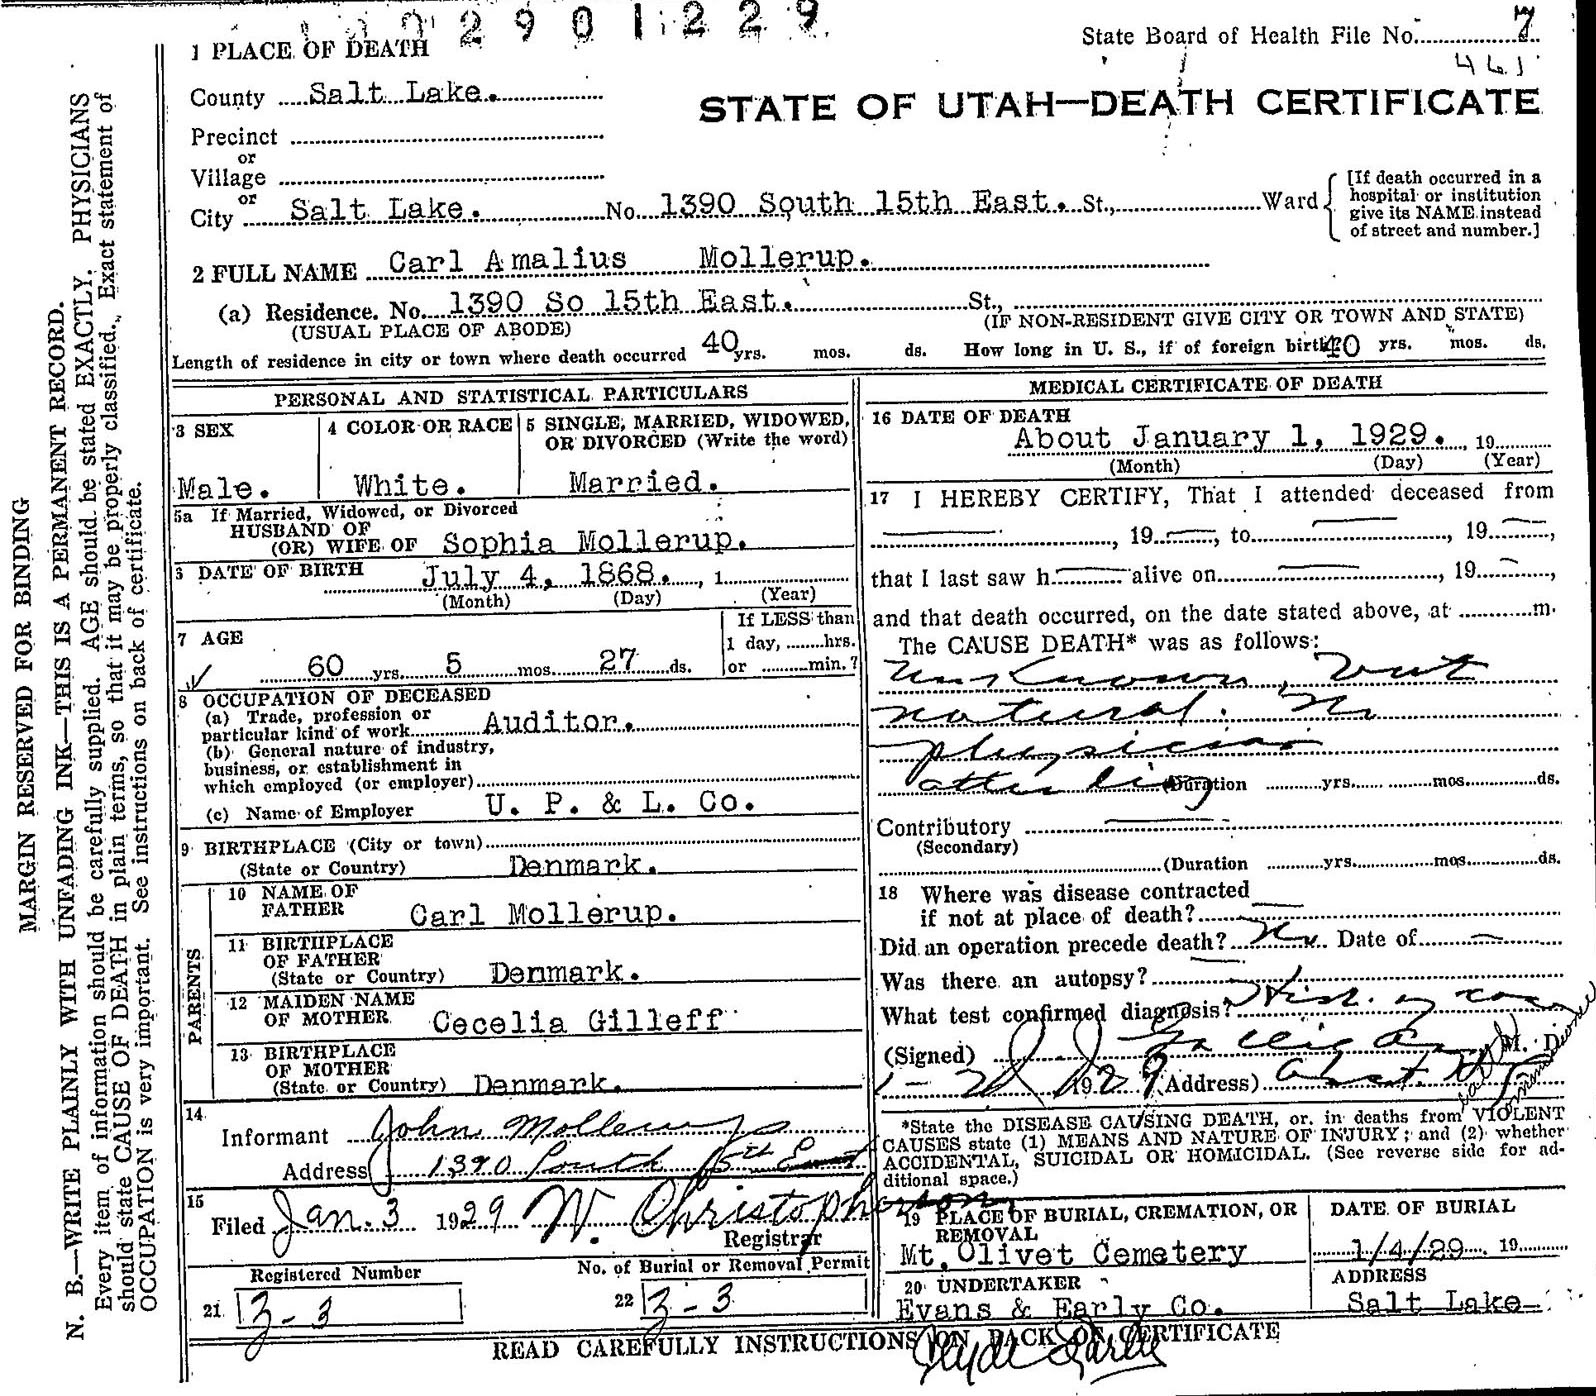 2901229
1 PLACE OF DEATH
State Board of Health File No. 7
461
County Salt Lake.
STATE OF UTAH—DEATH CERTIFICATE
Precinct
or
Village
or
City Salt Lake. No. 1390 South 15th East. St., Ward
[If death occurred in a
hospital or institution
give its NAME instead
of street and number.]
2 FULL NAME Carl Amalius Mollerup.
(a) Residence. No. 1390 So 15th East. St.,
(USUAL PLACE OF ABODE) (IF NON-RESIDENT GIVE CITY OR TOWN AND STATE)
Length of residence in city or town where death occurred 40 yrs. mos. ds. How long in U. S., if of foreign birth 40 yrs. mos. ds.
PERSONAL AND STATISTICAL PARTICULARS
3 SEX
Male.
4 COLOR OR RACE
White.
5 SINGLE, MARRIED, WIDOWED,
OR DIVORCED (Write the word)
Married.
5a If Married, Widowed, or Divorced
HUSBAND OF
(OR) WIFE OF Sophia Mollerup.
6 DATE OF BIRTH July 4, 1868. , 1
(Month) (Day) (Year)
7 AGE
60 yrs. 5 mos. 27 ds.
If LESS than
1 day, hrs.
or min.?
8 OCCUPATION OF DECEASED
(a) Trade, profession or
particular kind of work Auditor.
(b) General nature of industry,
business, or establishment in
which employed (or employer)
(c) Name of Employer U. P. & L. Co.
9 BIRTHPLACE (City or town)
(State or Country) Denmark.
PARENTS
10 NAME OF
FATHER Carl Mollerup.
11 BIRTHPLACE
OF FATHER
(State or Country) Denmark.
12 MAIDEN NAME
OF MOTHER Cecelia Gilleff
13 BIRTHPLACE
OF MOTHER
(State or Country) Denmark.
14
Informant John Mollerup
Address 1390 South 15th East
15
Filed Jan. 3 1929 W. Christopherson
Registrar
Registered Number
21 3-3
No. of Burial or Removal Permit
22 3-3
MEDICAL CERTIFICATE OF DEATH
16 DATE OF DEATH
About January 1, 1929. , 19
(Month) (Day) (Year)
17 I HEREBY CERTIFY, That I attended deceased from
, 19 , to , 19 ,
that I last saw h alive on , 19 ,
and that death occurred, on the date stated above, at m.
The CAUSE DEATH* was as follows:
Unknown, but
natural. No
physician
attending (Duration yrs. mos. ds.
Contributory
(Secondary)
(Duration yrs. mos. ds.
18 Where was disease contracted
if not at place of death?
Did an operation precede death? No Date of
Was there an autopsy?
What test confirmed diagnosis? Hist. of case
(Signed) M. D.
1-2 1929 (Address)
*State the DISEASE CAUSING DEATH, or in deaths from VIOLENT
CAUSES state (1) MEANS AND NATURE OF INJURY; and (2) whether
ACCIDENTAL, SUICIDAL OR HOMICIDAL. (See reverse side for ad-
ditional space.)
19 PLACE OF BURIAL, CREMATION, OR
REMOVAL
Mt. Olivet Cemetery
DATE OF BURIAL
1/4/29 19
20 UNDERTAKER
Evans & Early Co.
ADDRESS
Salt Lake
READ CAREFULLY INSTRUCTIONS ON BACK OF CERTIFICATE
Clyde Early
MARGIN RESERVED FOR BINDING
N. B.—WRITE PLAINLY WITH UNFADING INK—THIS IS A PERMANENT RECORD.
Every item of information should be carefully supplied. AGE should be stated EXACTLY. PHYSICIANS
should state CAUSE OF DEATH in plain terms, so that it may be properly classified. Exact statement of
OCCUPATION is very important. See instructions on back of certificate.